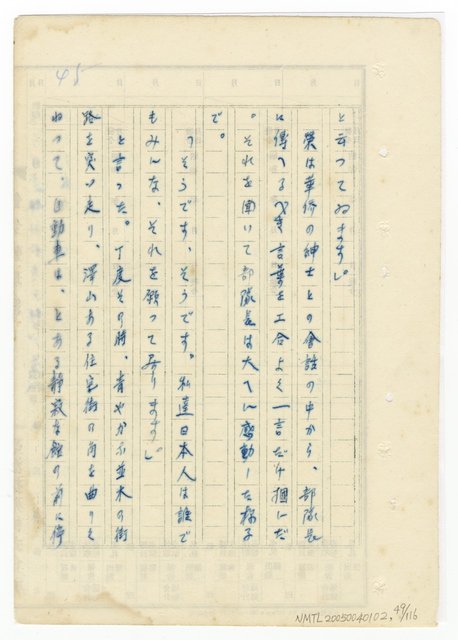 45
と云つてゐます」
榮は華僑の紳士との會話の中から、部隊長
に傳へるべき言葉を工合よく一言だけ掴にだ
。それを聞いて部隊長は大へに感動した様子
で。
「そうです、そうです。私達日本人は誰で
もみんな、それを願って居ります」
と言った。丁度その時、青やかな並木の街
路を突い走り、澤山ある住宅街の角を曲りく
ねって、自動車は、とある静寂な館の前に停
NMTL20050040102, 49/116